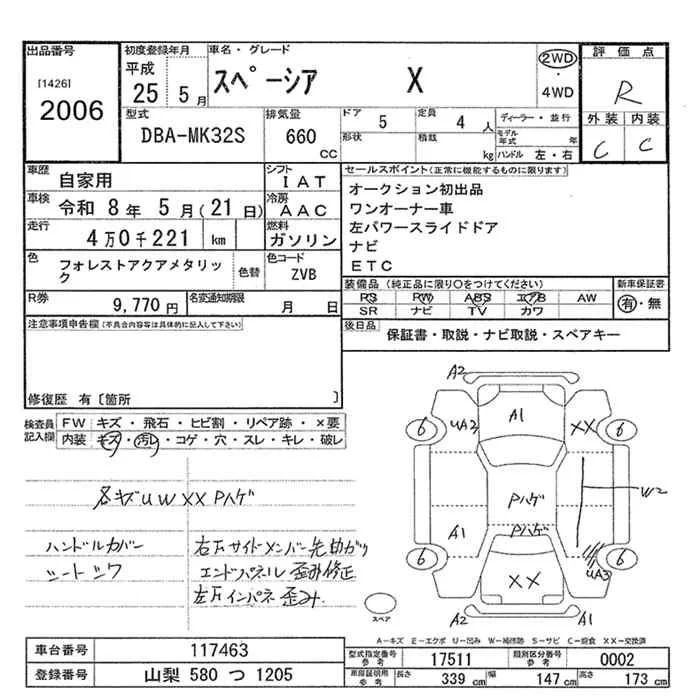 出品番号
[1426]
2006
初度登録年月
平成
25年 5月
車名・グレード
スペーシア X
2WD
・
4WD
評価点
R
外装 内装
C C
型式
DBA-MK32S
排気量
660
CC
ドア
5
定員
4人
形状
積載
kg
ディーラー・並行
モデル年式 年
ハンドル 左・右
車歴
自家用
シフト
IAT
車検
令和 8年 5月(21日)
冷房
AAC
走行
4万0千221 km
燃料
ガソリン
色
フォレストアクアメタリック
色替
色コード
ZVB
R券
9,770円
名変通知期限
月 日
セールスポイント(正常に機能するものに限ります)
オークション初出品
ワンオーナー車
左パワースライドドア
ナビ
ETC
装備品(純正品に限り〇をつけてください)
PS PW ABS エアB AW
SR ナビ TV カワ
新車保証書
有・無
後日品
保証書・取説・ナビ取説・スペアキー
注意事項申告欄(不具合内容等は具体的に記入して下さい)
修復歴 有〔箇所 〕
検査員記入欄
FW キズ・飛石・ヒビ割・リペア跡・×要
内装 キズ・汚レ・コゲ・穴・スレ・キレ・破レ
各キズUW XX Pハゲ
ハンドルカバー
シートシワ
右Fサイドメンバー先曲がり
エンドパネル歪み修正
左Fインパネ歪み
A2
A2
UA2
A1
XX
6
6
Pハゲ
W2
A1
Pハゲ
6
6
XX
UA3
A2
A1
スペア
A-キズ E-エクボ U-凹み W-補修跡 S-サビ C-腐食 XX-交換済
車台番号
117463
登録番号
山梨 580 つ 1205
型式指定番号
参考
17511
類別区分番号
参考
0002
車庫証明用
参考
長さ
339 cm
幅
147 cm
高さ
173 cm